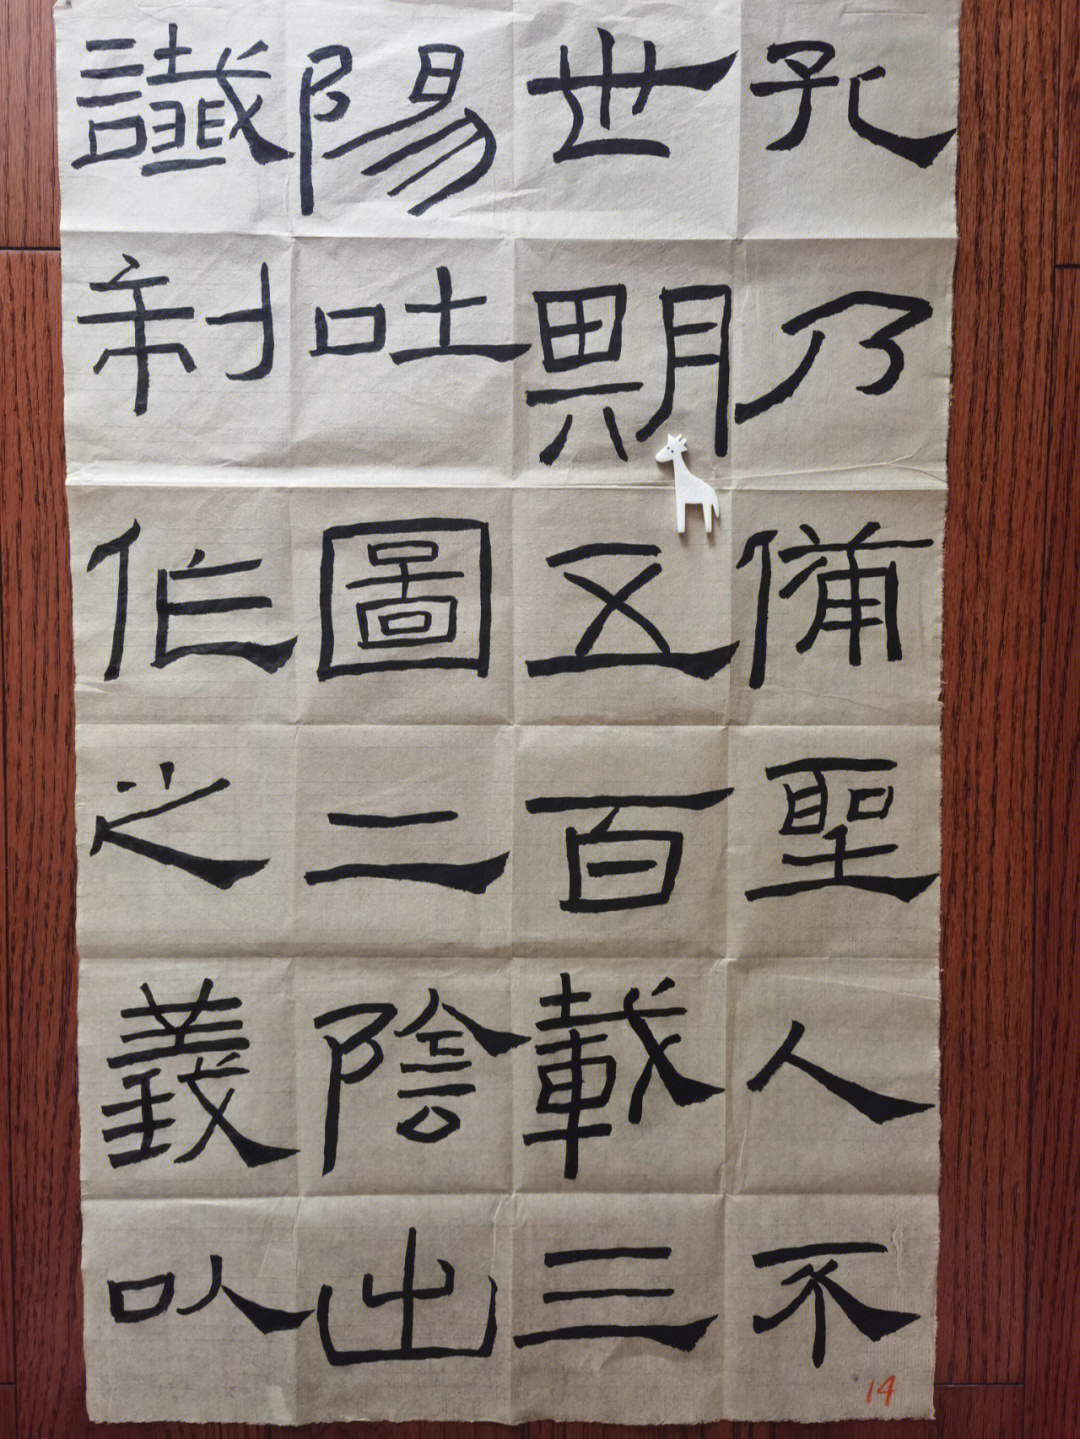 孔乃備聖人不
世期五百載三
陽吐圖二陰出
讖制作之義以
14